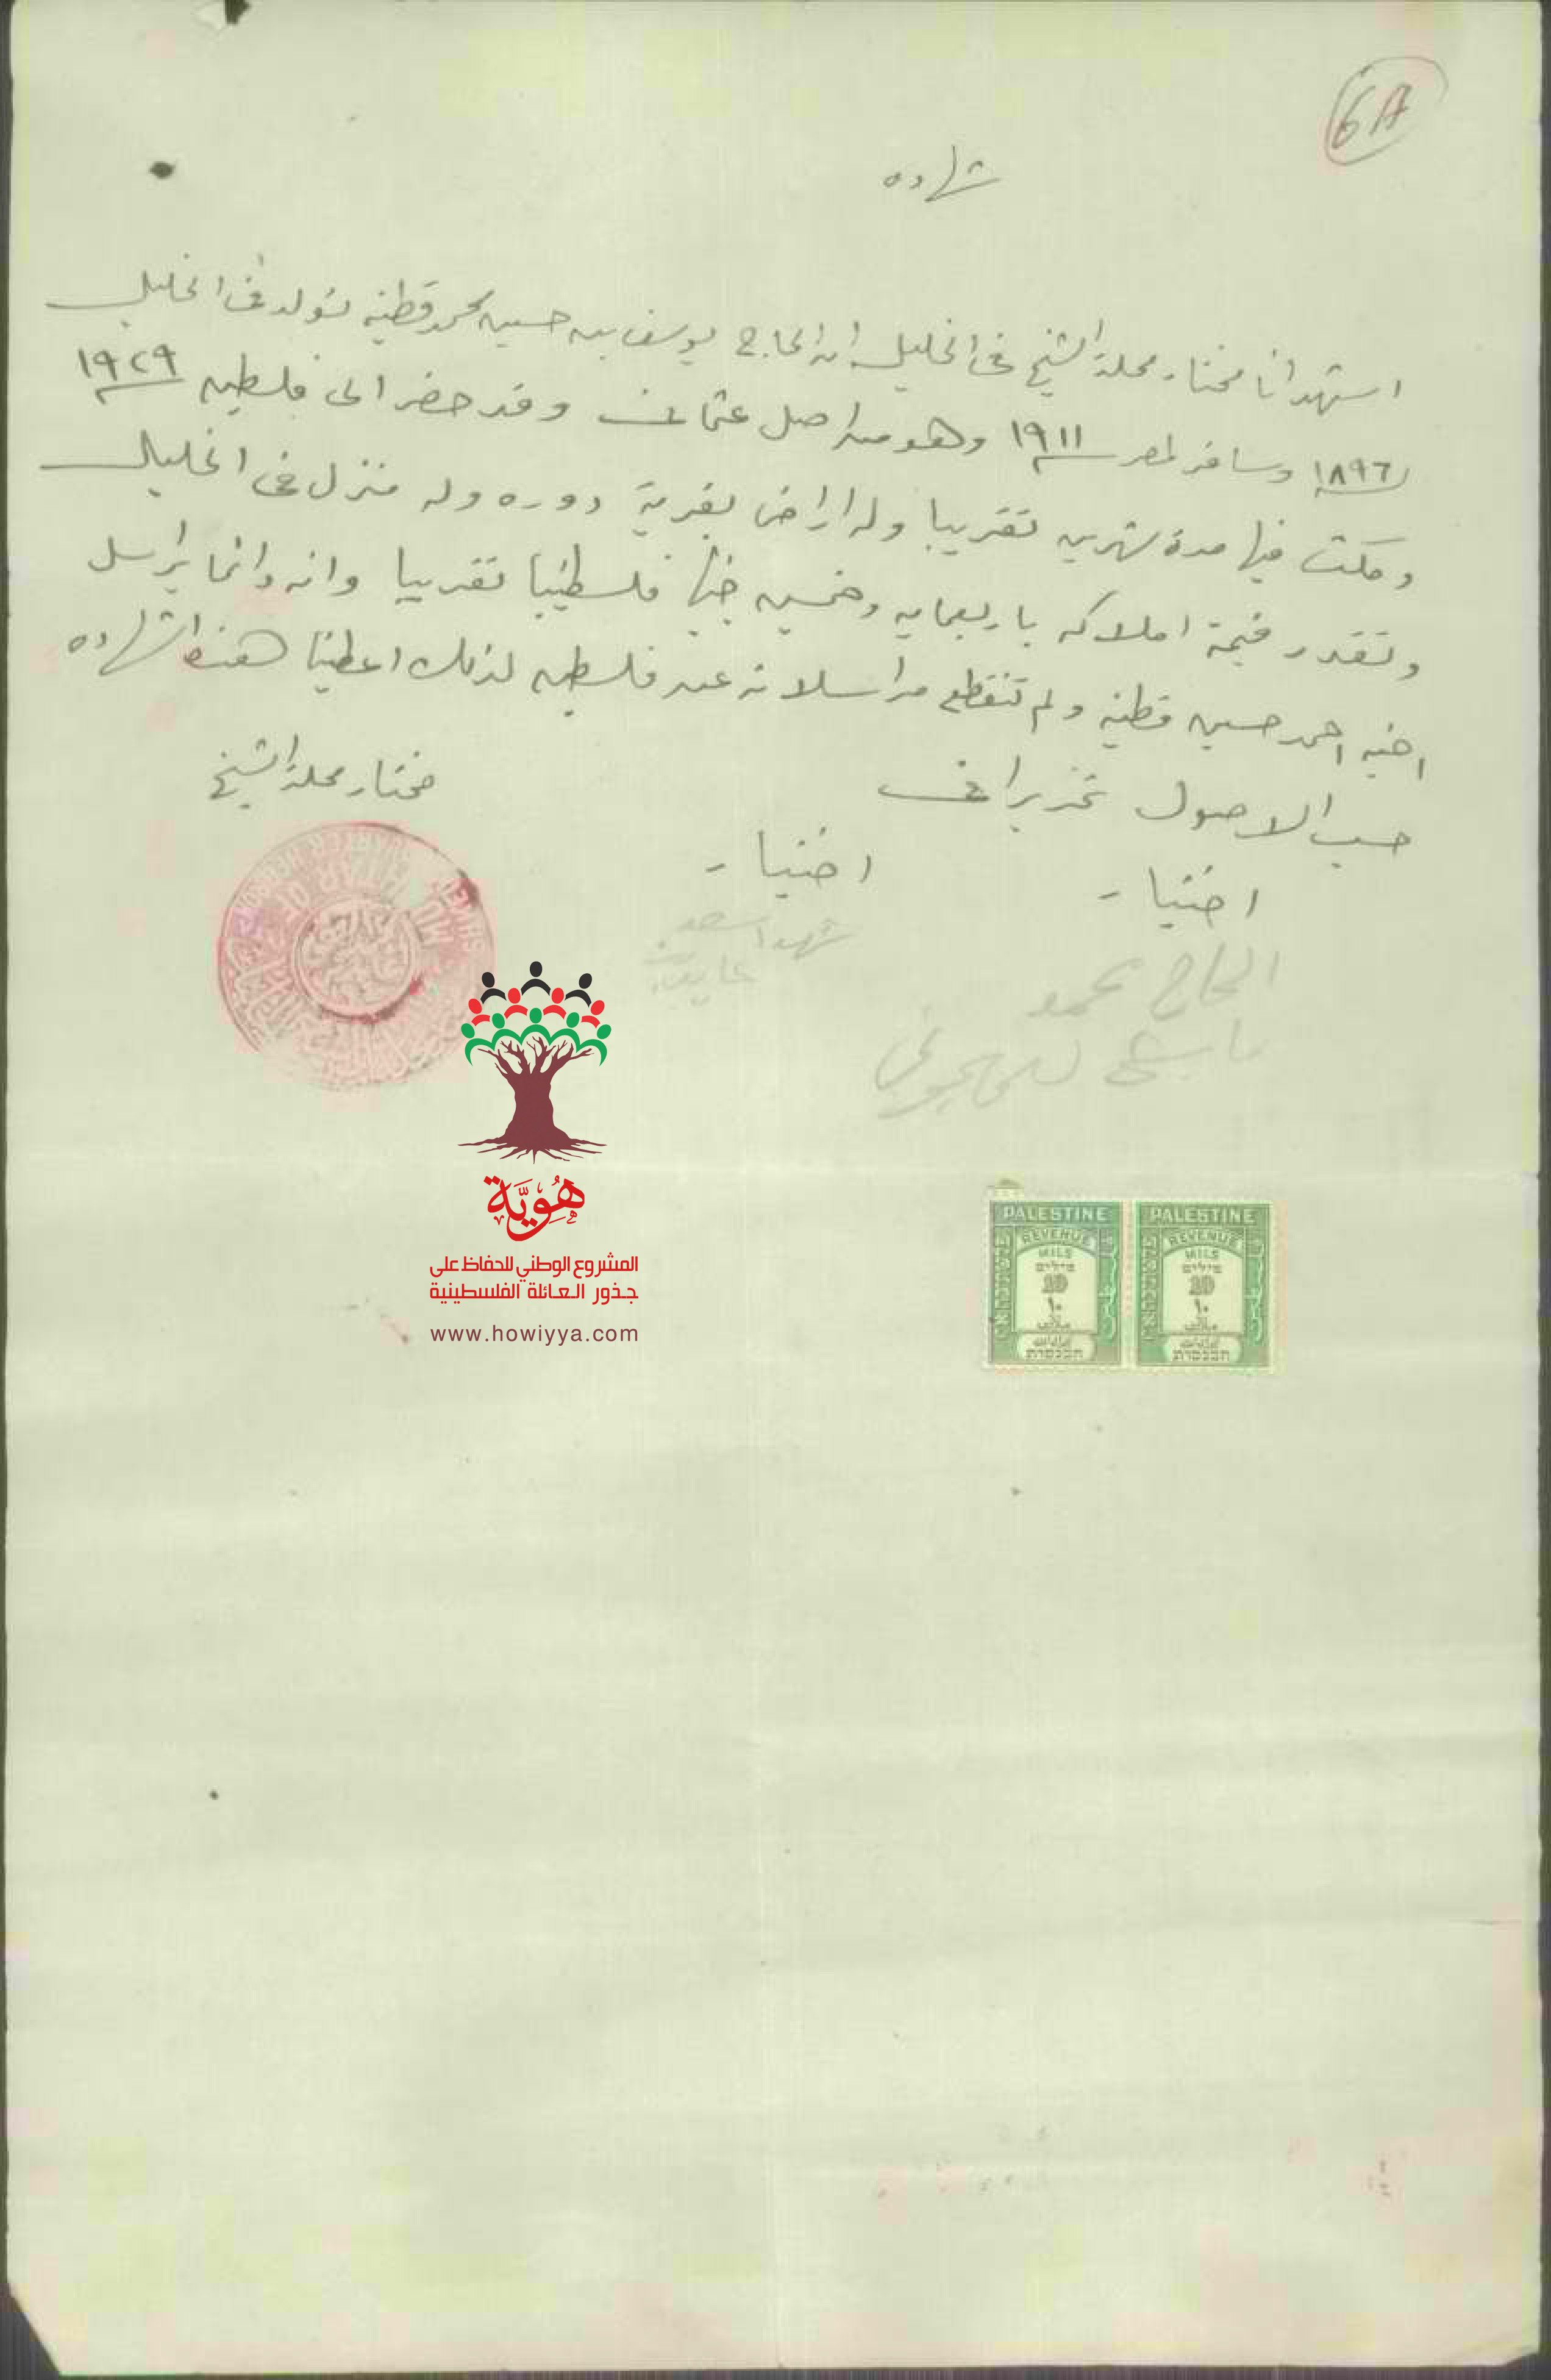 6A
شهاده
اشهد انا مختار محلة الشيخ في الخليل ان الحاج يوسف بن حسين محمد قطينه تولد في الخليل
١٨٩٦ وسافر لمصر ١٩١١ وهو من اصل عثماني وقد حضر الى فلسطين ١٩٢٩
ومكث فيها مدة شهرين تقريبا وله اراضي بقرية دوره وله منزل في الخليل
وتقدر قيمة املاكه باربعمايه وخمسين جنيها فلسطينيا تقريبا وانه دائما يراسل
اخيه احمد حسين قطينه ولم تنقطع مراسلاته عن فلسطين لذلك اعطينا هذه الشهاده
حسب الاصول تحريرا في
مختار محلة الشيخ
اختيار
اختيار
الحاج محمد
شهد اسعد
PALESTINE
REVENUE
MILS
מילים
10
١٠
ملات
הכנסות
PALESTINE
REVENUE
MILS
מילים
10
١٠
ملات
הכנסות
هُوِيَّة
المشروع الوطني للحفاظ على
جذور العائلة الفلسطينية
www.howiyya.com